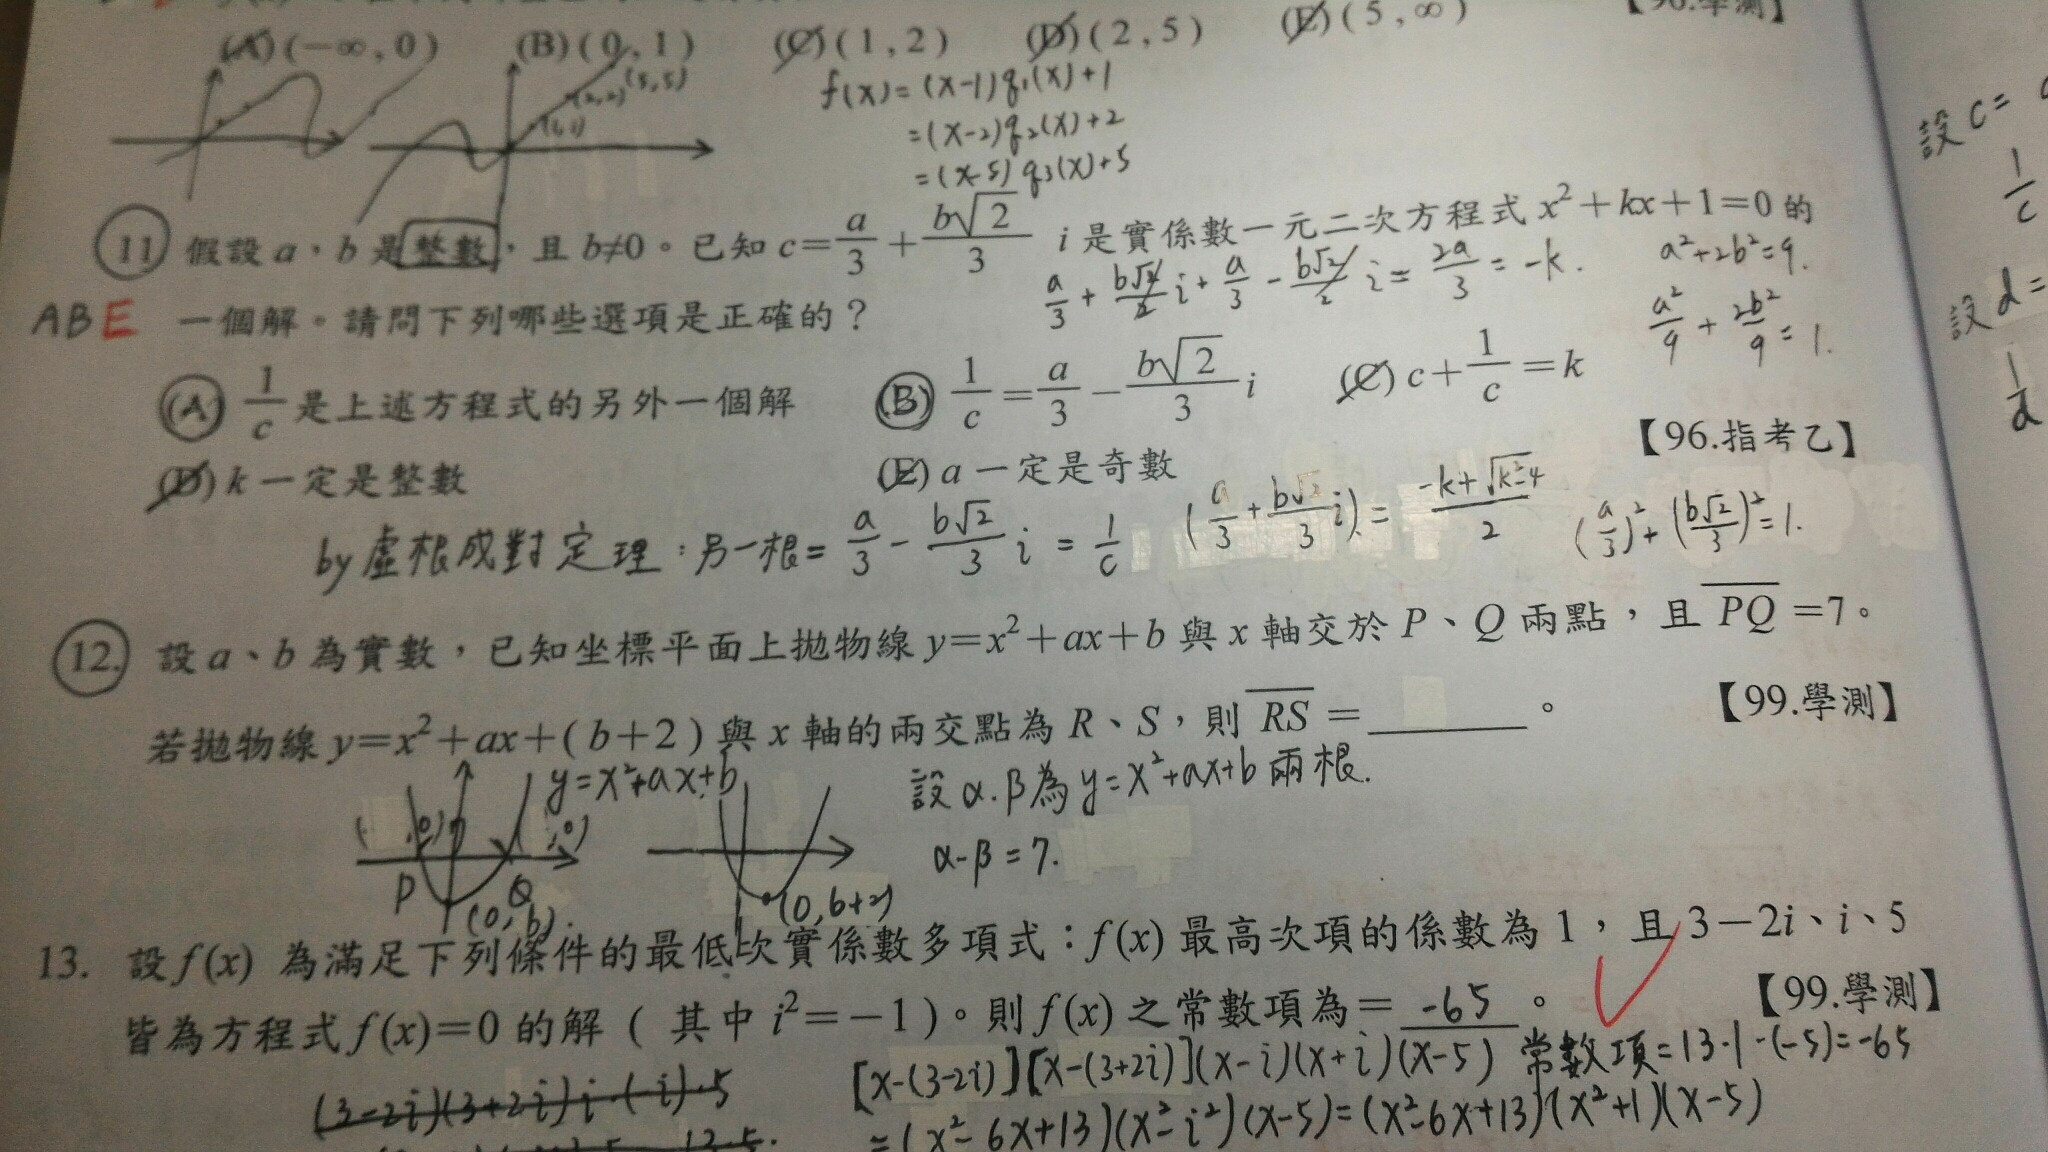 (A)(−∞,0) (B)(0,1) (C)(1,2) (D)(2,5) (E)(5,∞) 【96.學測】
(5,5)
(2,2)
(1,1)
f(x)=(x-1)q₁(x)+1
=(x-2)q₂(x)+2
=(x-5)q₃(x)+5
11 假設 a,b 是整數,且 b≠0。已知 c=a/3+b√2/3 i 是實係數一元二次方程式 x²+kx+1=0 的
a/3+b√2/2 i+a/3-b√2/2 i=2a/3=-k.
a²+2b²=9.
a²/9+2b²/9=1.
ABE 一個解。請問下列哪些選項是正確的?
(A) 1/c 是上述方程式的另外一個解 (B) 1/c=a/3−b√2/3 i (C) c+1/c=k
(D) k 一定是整數 (E) a 一定是奇數 【96.指考乙】
by 虛根成對定理:另一根=a/3-b√2/3 i=1/c
(a/3+b√2/3 i)=-k+√k²-4/2
(a/3)²+(b√2/3)²=1.
12. 設 a、b 為實數,已知坐標平面上拋物線 y=x²+ax+b 與 x 軸交於 P、Q 兩點,且 PQ=7。
若拋物線 y=x²+ax+(b+2) 與 x 軸的兩交點為 R、S,則 RS=______。 【99.學測】
y=x²+ax+b
( ,0) ( ,0)
P Q
(0,b).
(0,b+2)
設 α.β為 y=x²+ax+b 兩根.
α-β=7.
13. 設 f(x) 為滿足下列條件的最低次實係數多項式:f(x) 最高次項的係數為 1,且 3−2i、i、5
皆為方程式 f(x)=0 的解(其中 i²=−1)。則 f(x) 之常數項為=-65。 【99.學測】
(3-2i)(3+2i)i·(-i)·5
[x-(3-2i)][x-(3+2i)](x-i)(x+i)(x-5) 常數項=13·1·(-5)=-65
=(x²-6x+13)(x²-i²)(x-5)=(x²-6x+13)(x²+1)(x-5)
設 c=
1/c
設 d=
1/d